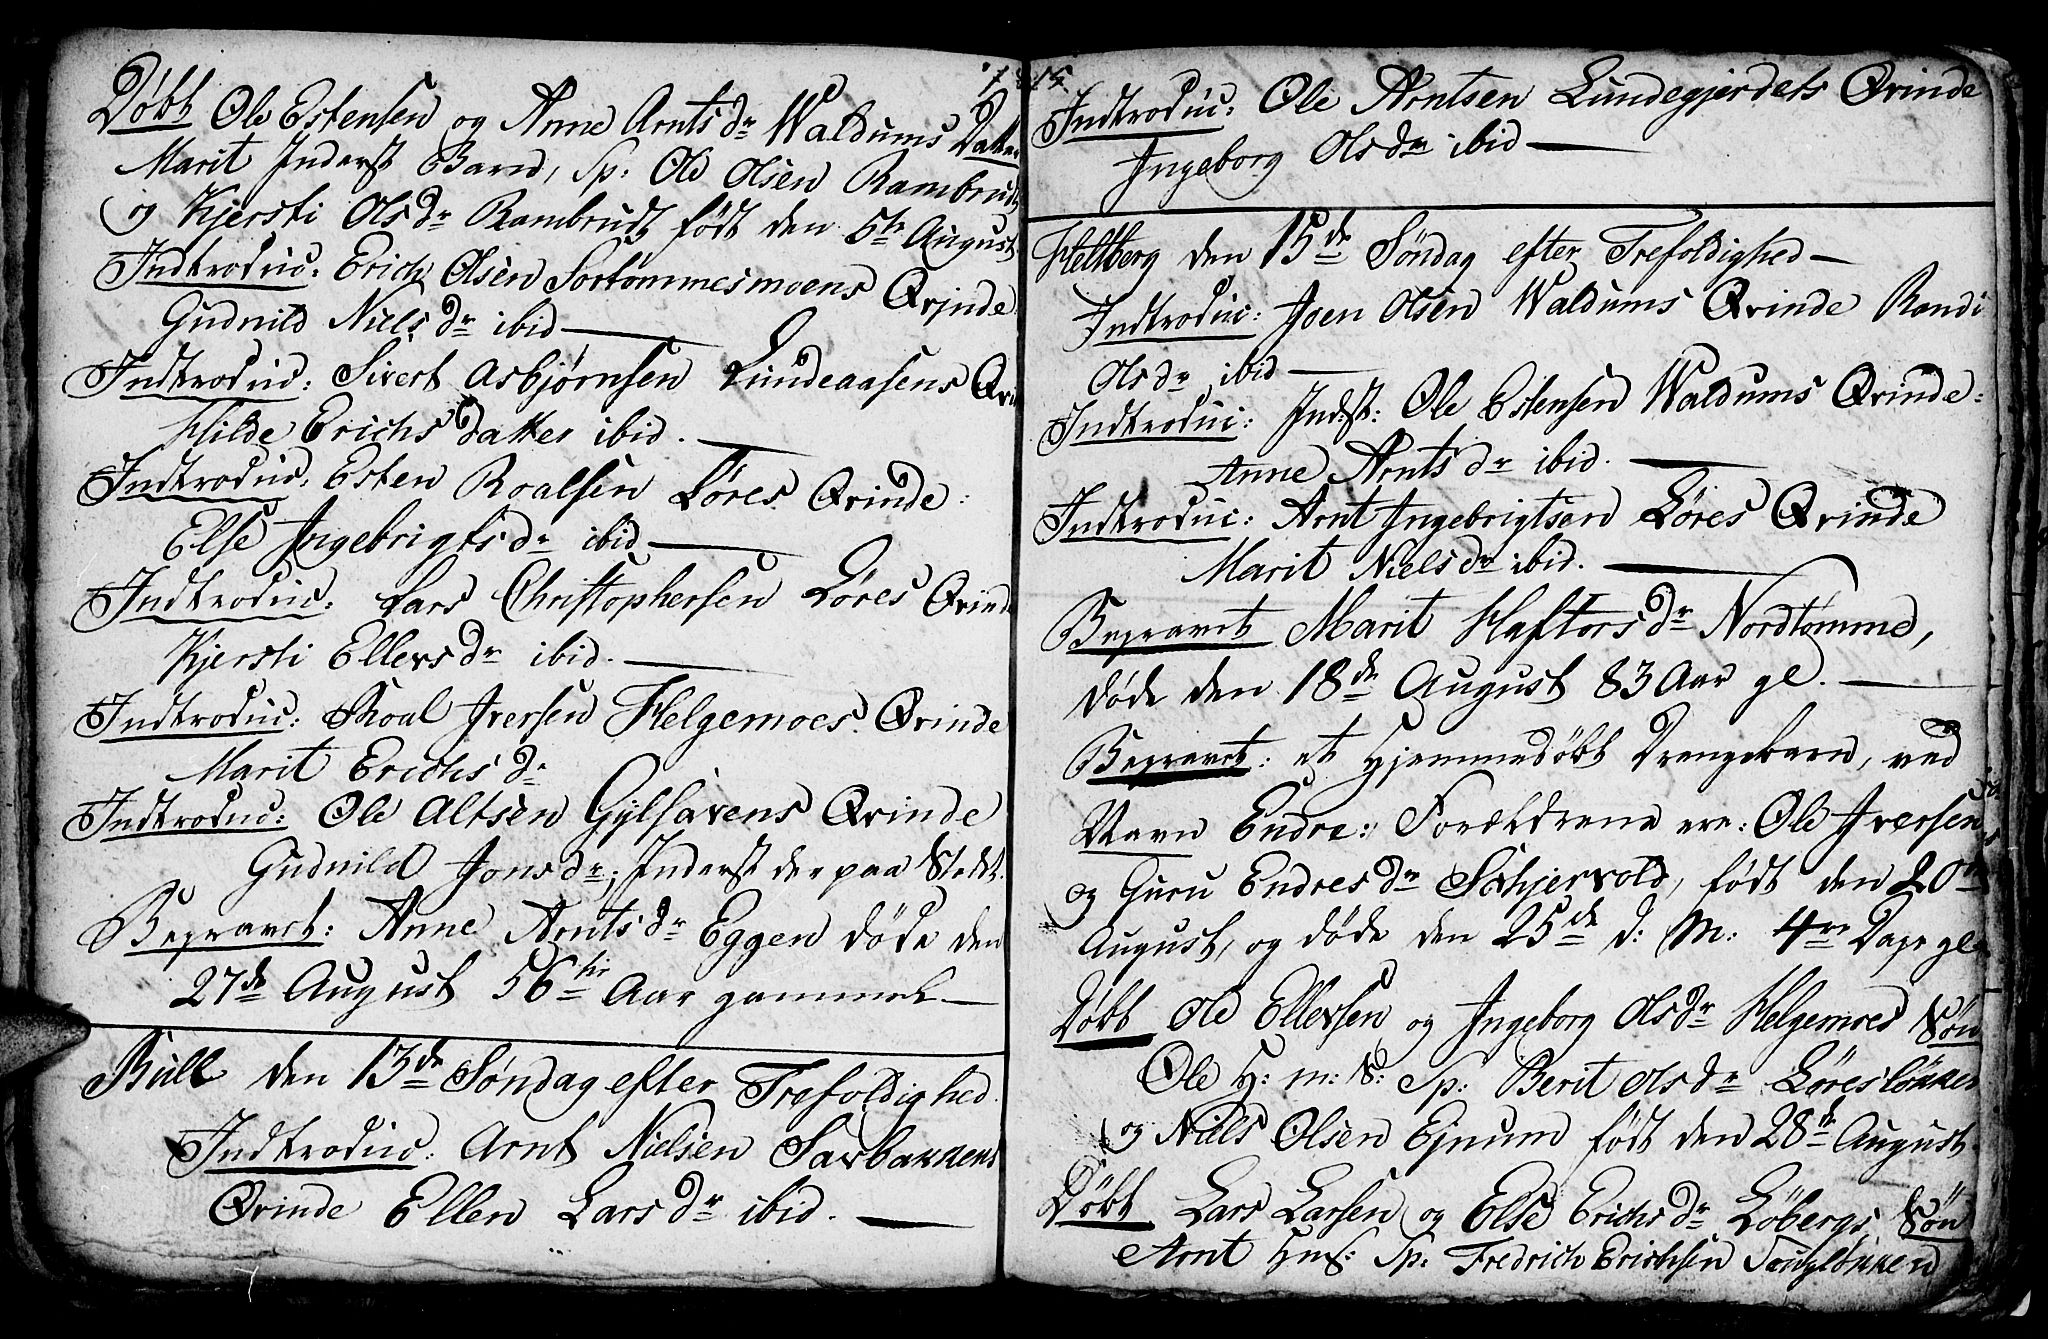 Døbt Ole Estensen og Anne Arntsdr Waldums Datter
Marit Inderst Barn, Sp: Ole Olsen Rambrudt
og Kjersti Olsdr Rambrudt født den 5te August
Indtroduc: Erich Olsen Sortømmesmoens Qvinde
Gudnild Nielsdr ibid
Indtroduc: Sivert Asbjørnsen Lundeaasens
Hilde Erichsdatter ibid.
Indtroduc: Esten Roalsen Løres Qvinde:
Else Ingebrigtsdr ibid
Indtroduc: Lars Christophersen Løres Qvinde
Kjersti Ellevsdr ibid.
Indtroduc: Roal Iversen Helgemoes Qvinde
Marit Erichsdr
Indtroduc: Ole Altsen Qvinde
Gudnild Jonsdr; Inderst der paa Stedet.
Begravet: Anne Arntsdr Eggen døde den
27de August 56tir Aar gammel
Bull den 13de Søndag efter Trefoldighed.
Indtroduc: Arnt Nielsen Sarbakkens
Qvinde Ellen Larsdr ibid.
15.
Indtroduc: Ole Arntsen Lundegjerdets Qvinde
Ingeborg Olsdr ibid
Heltberg den 15de Søndag efter Trefoldighed
Indtroduc: Joen Olsen Waldums Qvinde Randi
Olsdr ibid
Indtroduc: Indst: Ole Estensen Waldums Qvinde:
Anne Arntsdr ibid.
Indtroduc: Arnt Ingebrigtsen Løres Qvinde
Marit Nielsdr ibid.
Begravet Marit Haftorsdr Nordtømme,
døde den 18de August 83 Aar gl.
Begravet: et Hjemmedøbt Drengebarn, ved
Navn Endre: Forældrene ere: Ole Iversen
og Guru Endresdr Schjervold, født den 20de
August, og døde den 25de d: M: 4re Dage gl.
Døbt Ole Ellevsen og Ingeborg Olsdr Helgemoes Søn
Ole H: m: S: Sp: Berit Olsdr Løresløkken
og Niels Olsen Ejnum født den 28de August
Døbt Lars Larsen og Else Erichsdr Løbergs Søn
Arnt Sp: Fredrich Erichsen